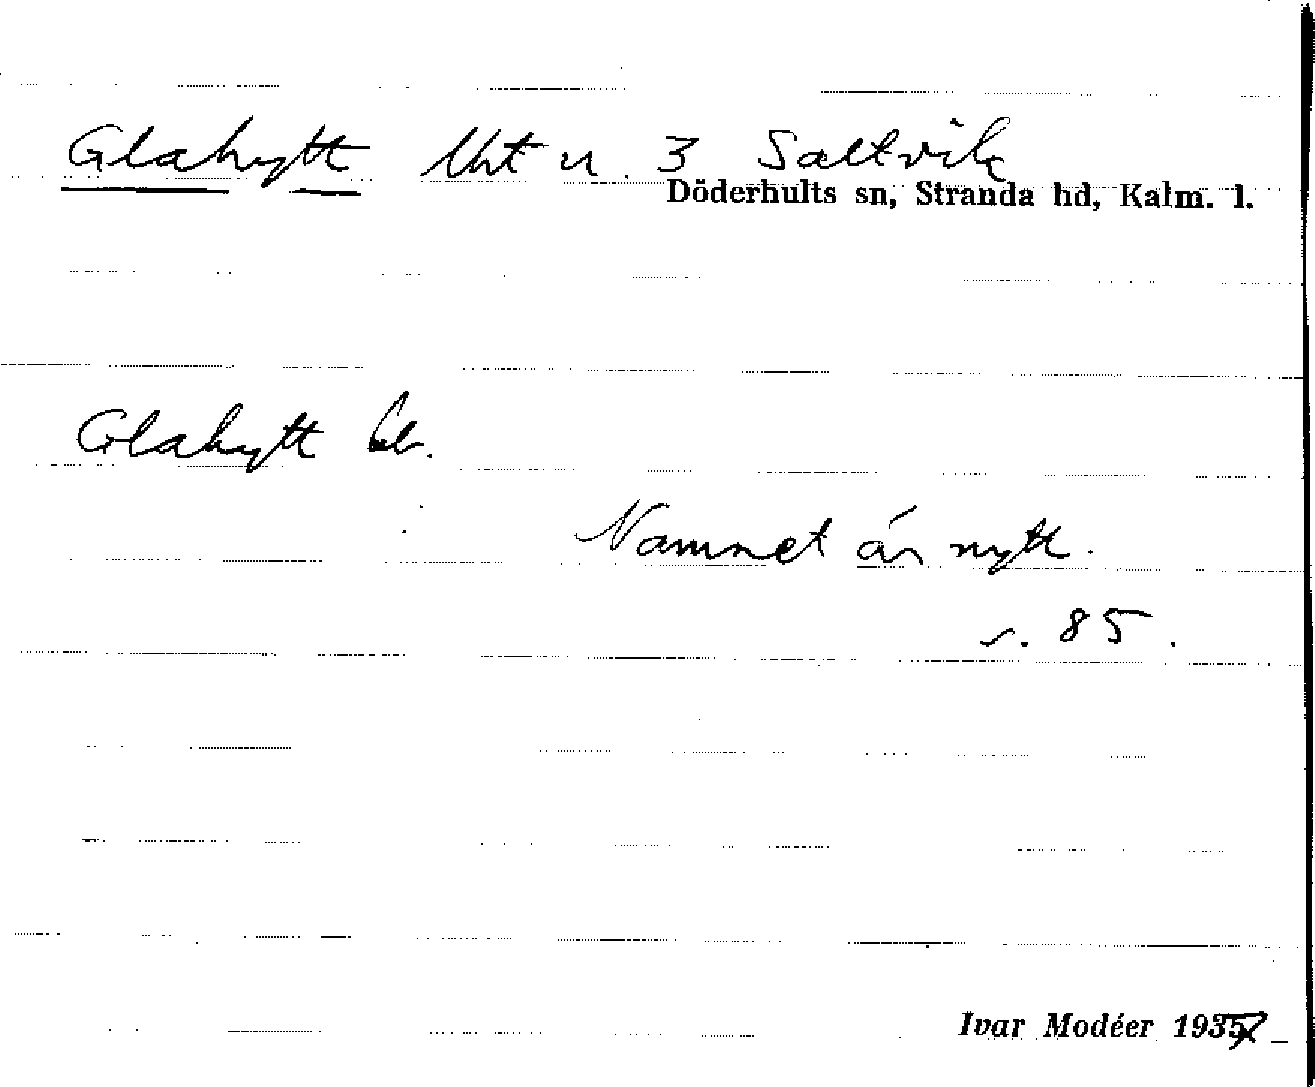 Glahytt lht u. 3 Saltvik
Döderhults sn, Stranda hd, Kalm. l.
Glahytt
Namnet är nytt.
s. 85.
Ivar Modéer 1937